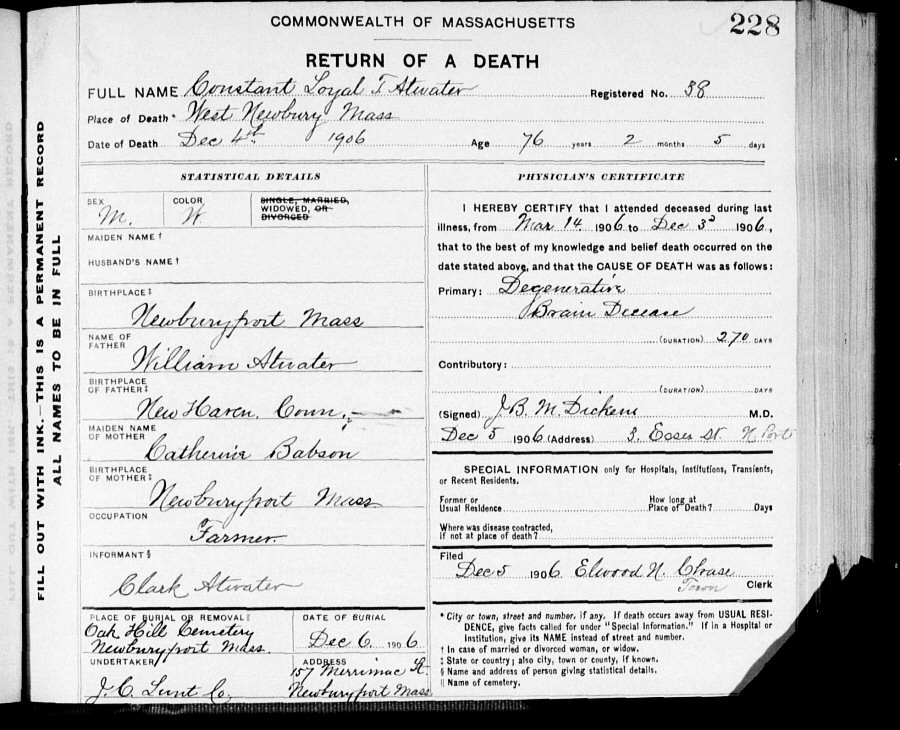 COMMONWEALTH OF MASSACHUSETTS
228
RETURN OF A DEATH
FULL NAME Constant Loyal T Atwater Registered No. 38
Place of Death* West Newbury Mass
Date of Death Dec 4th 1906 Age 76 years 2 months 5 days
FILL OUT WITH INK.—THIS IS A PERMANENT RECORD
ALL NAMES TO BE IN FULL
STATISTICAL DETAILS
SEX M.
COLOR W
SINGLE, MARRIED,
WIDOWED, OR
DIVORCED
MAIDEN NAME †
HUSBAND'S NAME †
BIRTHPLACE ‡
Newburyport Mass
NAME OF
FATHER
William Atwater
BIRTHPLACE
OF FATHER ‡
New Haven, Conn.
MAIDEN NAME
OF MOTHER
Catherine Babson
BIRTHPLACE
OF MOTHER ‡
Newburyport Mass
OCCUPATION
Farmer
INFORMANT §
Clark Atwater
PLACE OF BURIAL OR REMOVAL ||
Oak Hill Cemetery
Newburyport Mass.
DATE OF BURIAL
Dec 6, 1906
UNDERTAKER
J. C. Lunt Co.
ADDRESS
157 Merrimac St.
Newburyport Mass
PHYSICIAN'S CERTIFICATE
I HEREBY CERTIFY that I attended deceased during last
illness, from Mar 14 1906 to Dec 3d 1906,
that to the best of my knowledge and belief death occurred on the
date stated above, and that the CAUSE OF DEATH was as follows:
Primary: Degenerative
Brain Disease
(DURATION) 270 DAYS
Contributory:
(DURATION) DAYS
(Signed) J. B. M. Dickens M.D.
Dec 5 1906 (Address) 3. Essex St. N. Port
SPECIAL INFORMATION only for Hospitals, Institutions, Transients,
or Recent Residents.
Former or
Usual Residence
How long at
Place of Death? Days
Where was disease contracted,
If not at place of death?
Filed
Dec 5 1906 Elwood N. Chase
Town Clerk
* City or town, street and number, if any. If death occurs away from USUAL RESI-
DENCE, give facts called for under "Special Information." If in a Hospital or
Institution, give its NAME instead of street and number.
† In case of married or divorced woman, or widow.
‡ State or country; also city, town or county, if known.
§ Name and address of person giving statistical details.
|| Name of cemetery.